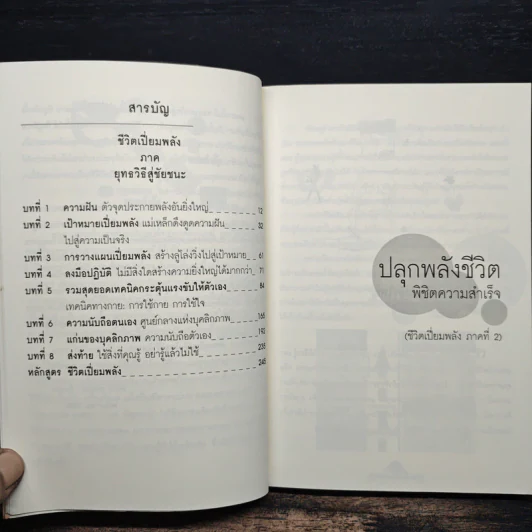 สารบัญ
ชีวิตเปี่ยมพลัง
ภาค
ยุทธวิธีสู่ชัยชนะ
บทที่ 1 ความฝัน ตัวจุดประกายพลังอันยิ่งใหญ่ 12
บทที่ 2 เป้าหมายเปี่ยมพลัง แม่เหล็กดึงดูดความฝัน 32
ไปสู่ความเป็นจริง
บทที่ 3 การวางแผนเปี่ยมพลัง สร้างลู่โล่งวิ่งไปสู่เป้าหมาย 61
บทที่ 4 ลงมือปฏิบัติ ไม่มีสิ่งใดสร้างความยิ่งใหญ่ได้มากกว่า 71
บทที่ 5 รวมสุดยอดเทคนิคกระตุ้นแรงขับให้ตัวเอง 84
เทคนิคทางกาย: การใช้กาย การใช้ใจ
บทที่ 6 ความนับถือตนเอง ศูนย์กลางแห่งบุคลิกภาพ 166
บทที่ 7 แก่นของบุคลิกภาพ ความนับถือตัวเอง 193
บทที่ 8 ส่งท้าย ใช้สิ่งที่คุณรู้ อย่ารู้แล้วไม่ใช้ 235
หลักสูตร ชีวิตเปี่ยมพลัง 245
ปลุกพลังชีวิต
พิชิตความสำเร็จ
(ชีวิตเปี่ยมพลัง ภาคที่ 2)